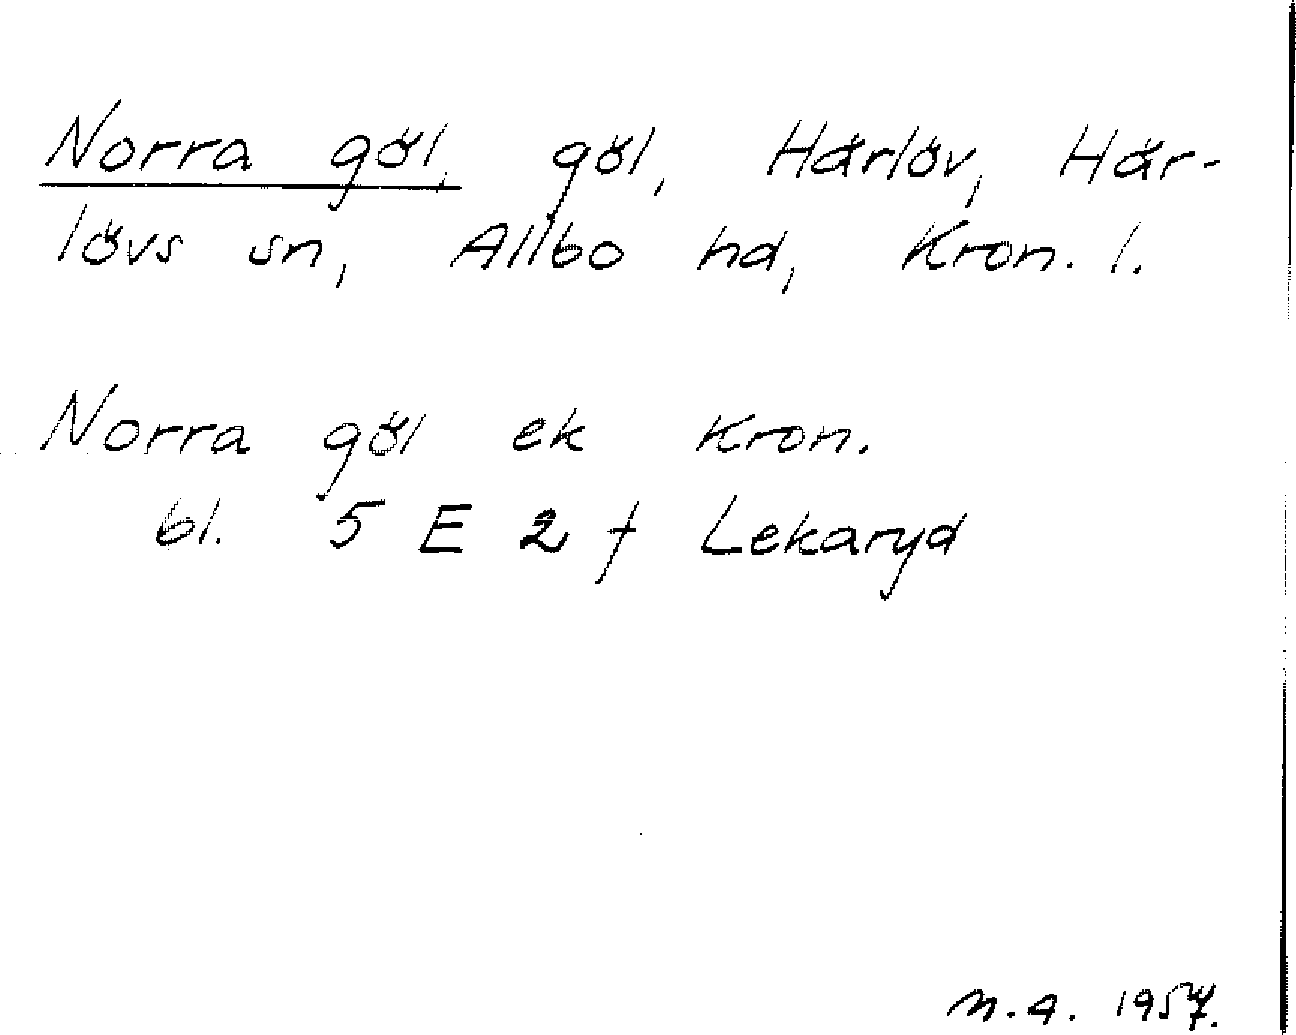 Norra göl, göl, Härlöv, Här-
lövs sn, Allbo hd, Kron. l.
Norra göl ek Kron.
bl. 5 E 2 f Lekaryd
N.A. 1957.